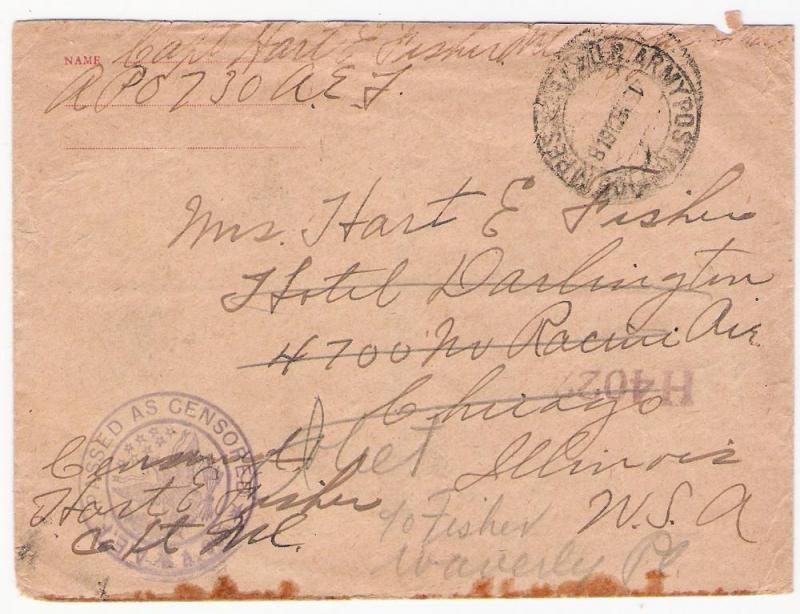 NAME Capt Hart E Fisher
APO 730 A.E.F.
U.S. ARMY POSTAL
Mrs. Hart E Fisher
Hotel Darlington
4700 No Racine Ave
H402
Chicago
Illinois
U.S.A
PASSED AS CENSORED
Censored
Hart E Fisher
Capt MC.
c/o Fisher
Waverly Pl.